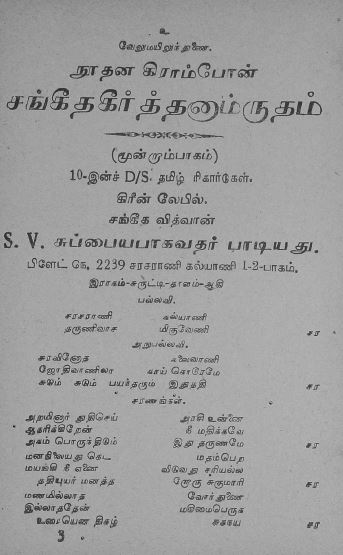 உ
வேலுமயிலுர்துணை.
நூதன கிராம்போன்
சங்கீதகீர்த்தனாம்ருதம்
(மூன்றாம்பாகம்)
10-இன்ச் D/S. தமிழ் ரிகார்டுகள்.
கிரீன் லேபில்.
சங்கீத வித்வான்
S. V. சுப்பையபாகவதர் பாடியது.
பிளேட் நெ. 2239 சரசராணி கல்யாணி 1-2-பாகம்.
இராகம்-சுருட்டி-தாளம்-ஆதி
பல்லவி.
சரசராணி கல்யாணி
தருணிவாச மிருவேணி சர
அநுபல்லவி.
சுரவினோத கலைவாணி
ஜோதிவாணிலா காய் கொரேமே
சுடும் சுடும் பயந்தரும் இதுததி சர
சரணங்கள்.
அறமினார் துதிசெய் அரசி உன்னை
ஆதரிக்கிறேன் நீ மதிக்கவே
அகம் பொருந்திடும் இது தருணமே சர
மனநிலையது கெட மதம்பெற
மயங்கி நீ எனை விடுவது சரியல்ல
ததியுயர் மனத்த ரூரூ சுகுமாரி சர
மணமில்லாத வேசர்துணை
இல்லாததேன் மகிமைபெருக
உரையென நிகழ் சுகாய சர
3